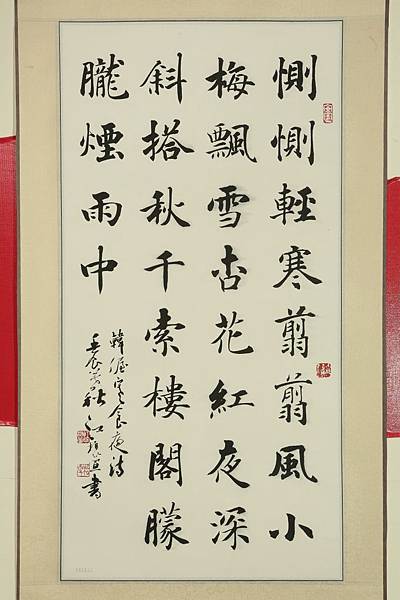 惻惻輕寒翦翦風小
梅飄雪杏花紅夜深
斜搭秋千索樓閣朦
朧煙雨中
韓偓寒食夜詩
秋 江 書